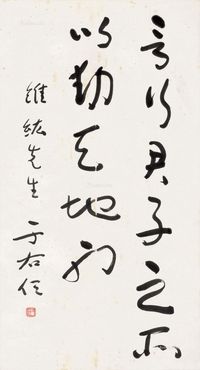 言行君子之所
以動天地也
維紘先生
于右任